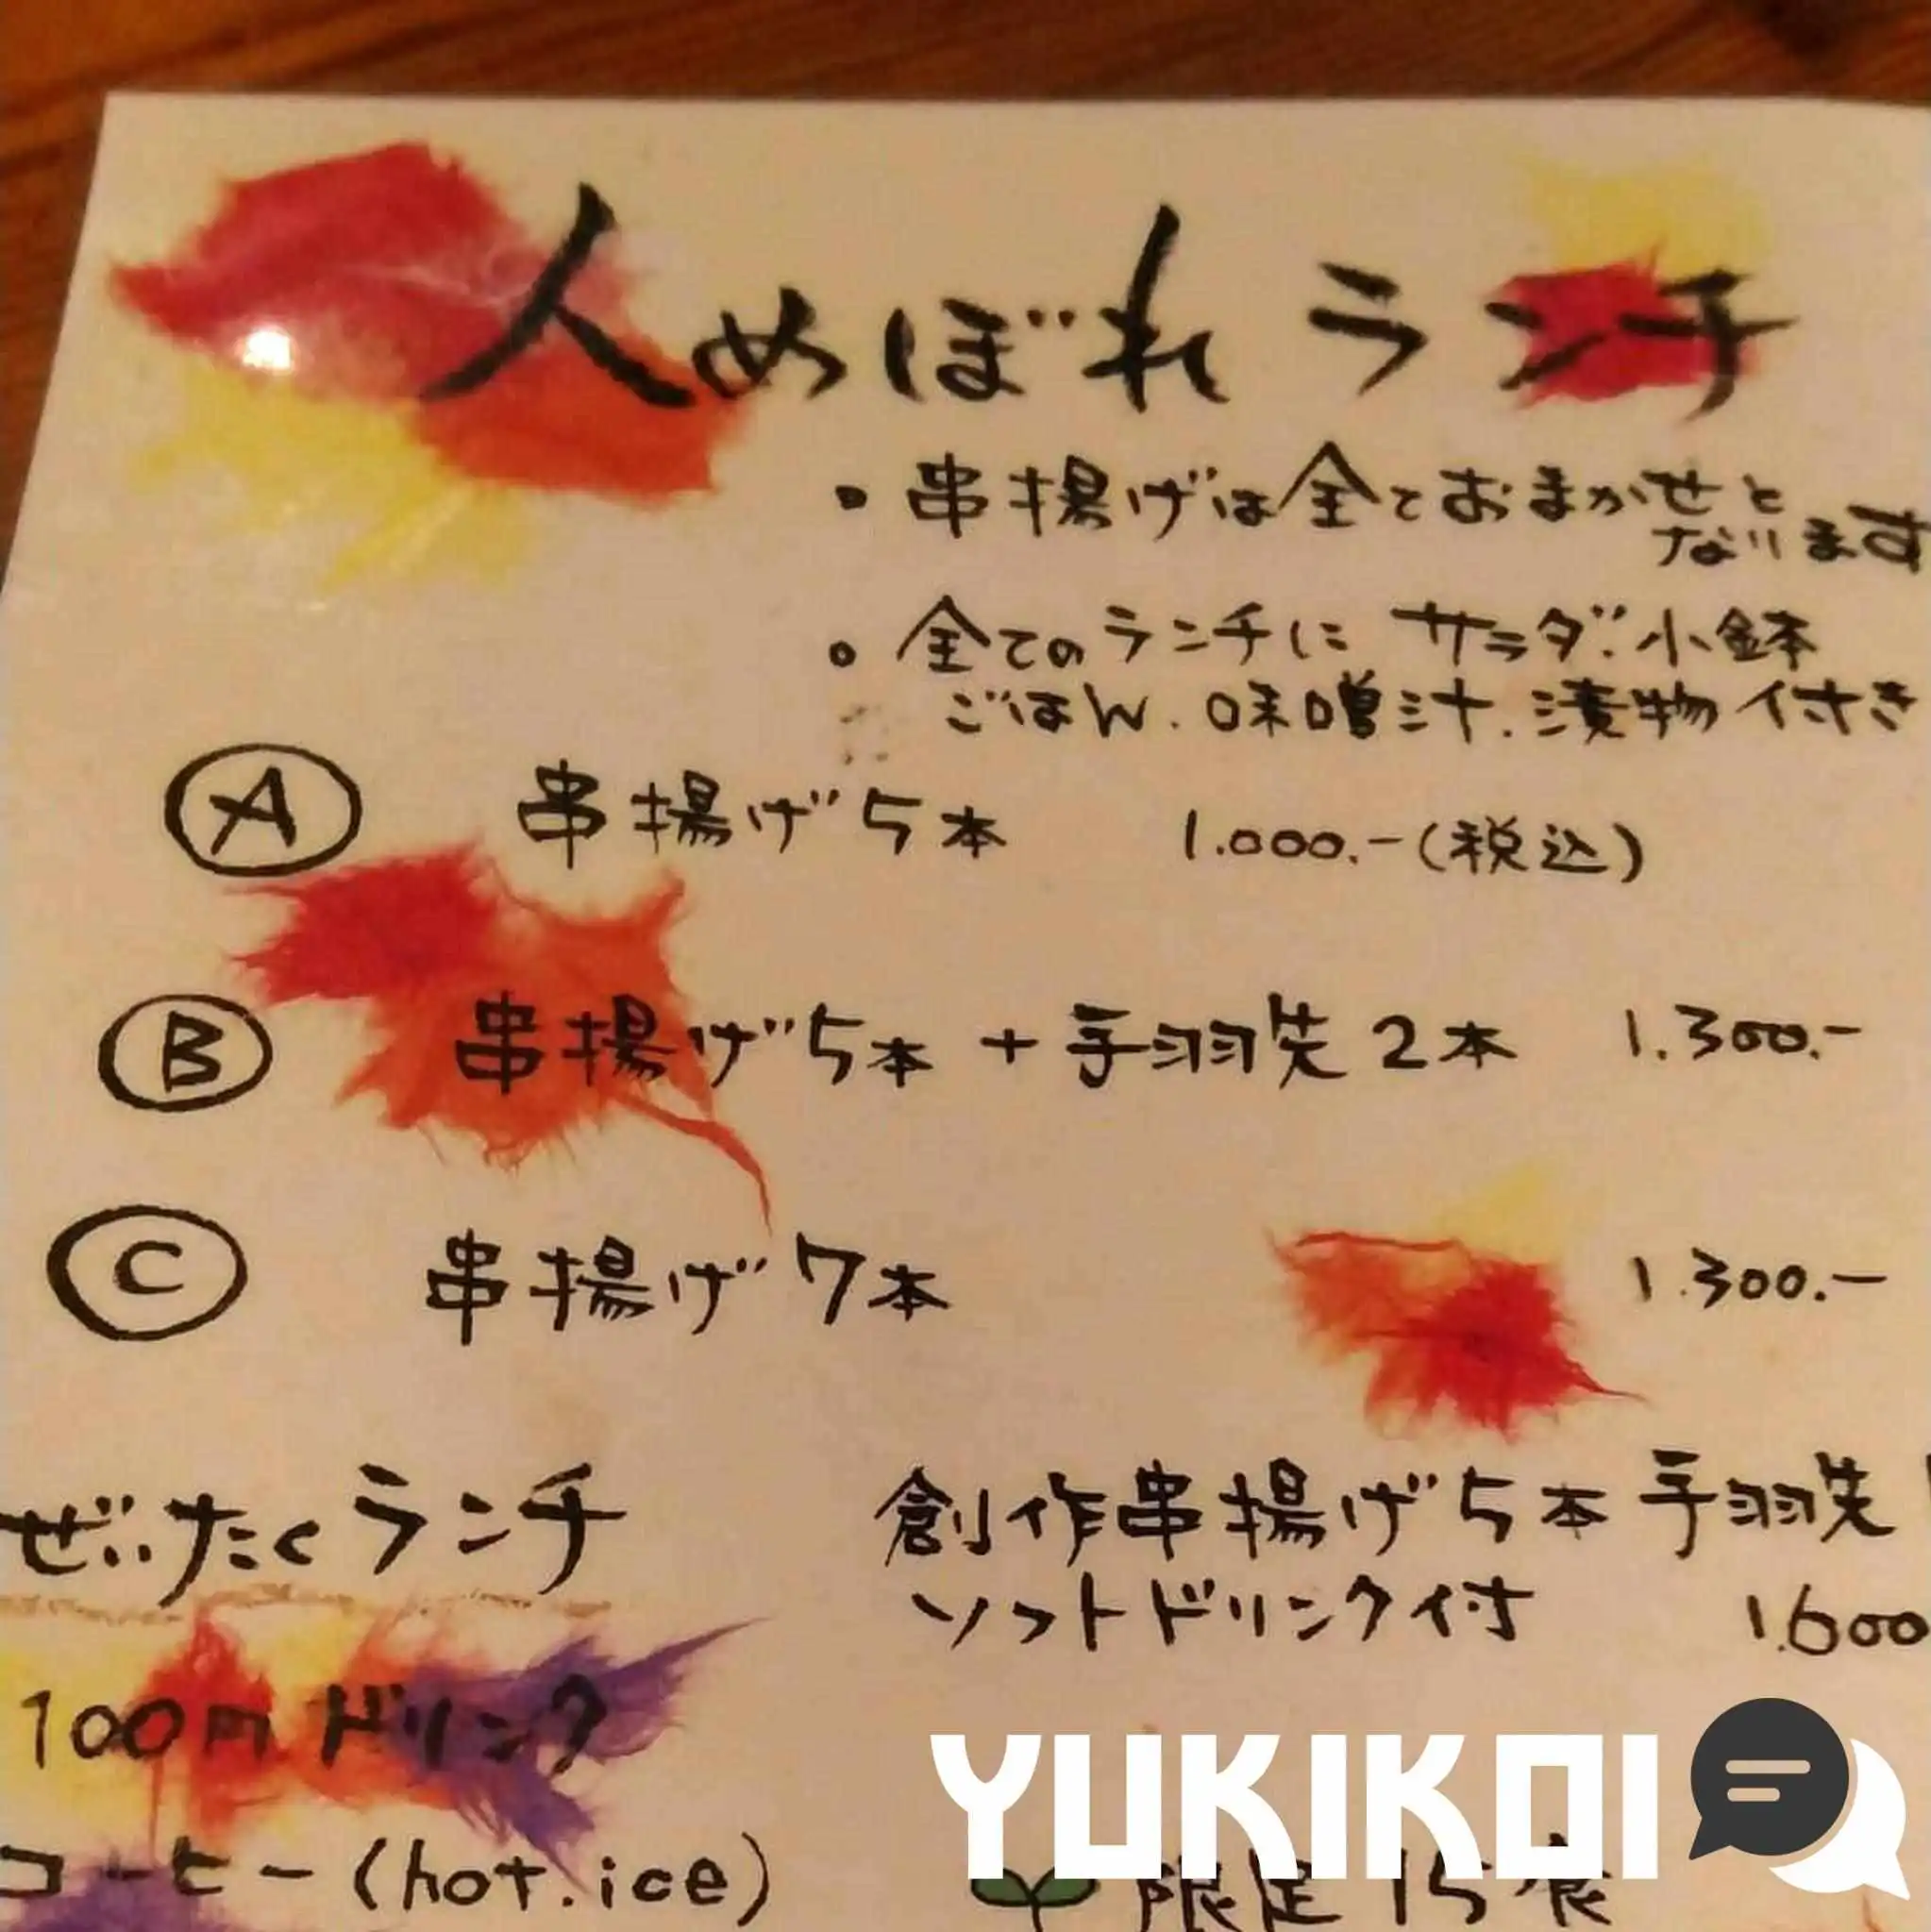 人めぼれランチ
・串揚げは全ておまかせと
なります
・全てのランチに サラダ.小鉢
ごはん.味噌汁.漬物付き
Ⓐ 串揚げ5本 1.000.-(税込)
Ⓑ 串揚げ5本 + 手羽先2本 1.300.-
Ⓒ 串揚げ7本 1.300.-
ぜいたくランチ 創作串揚げ5本 手羽先
ソフトドリンク付 1.600
100円ドリンク
YUKIKOI
コーヒー(hot.ice)
限定15食